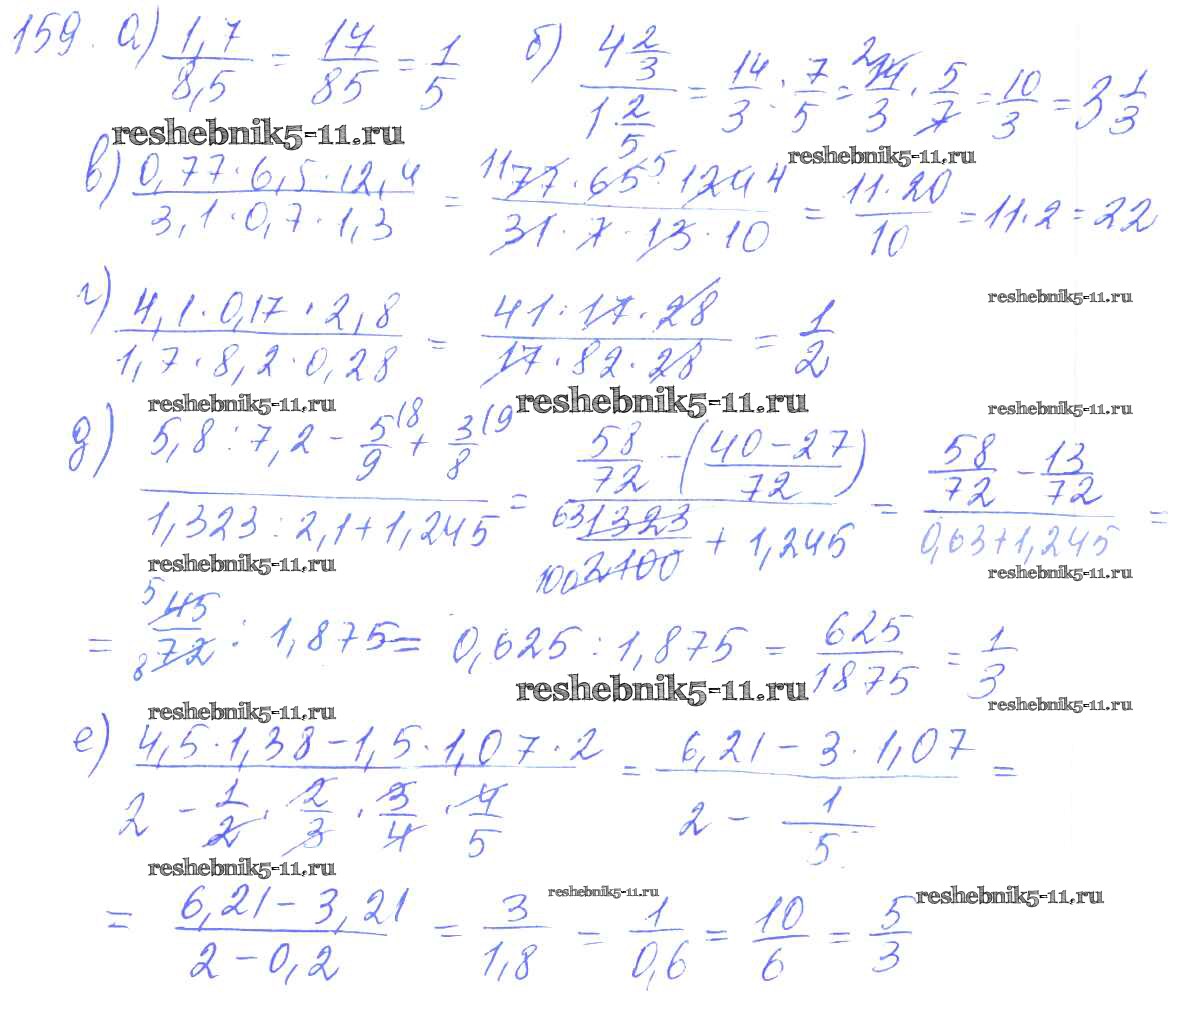 159. а) 1,7/8,5 = 17/85 = 1/5 б) 4 2/3 / 1 2/5 = 14/3 : 7/5 = 2 14/3 · 5/7 = 10/3 = 3 1/3
reshebnik5-11.ru
reshebnik5-11.ru
в) 0,77·6,5·12,4 / 3,1·0,7·1,3 = 11 77·65 5·124 4 / 31·7·13·10 = 11·20/10 = 11·2 = 22
reshebnik5-11.ru
г) 4,1·0,17·2,8 / 1,7·8,2·0,28 = 41·17·28 / 17·82·28 = 1/2
reshebnik5-11.ru reshebnik5-11.ru reshebnik5-11.ru
д) 5,8:7,2 - 5/9 (8 + 3/8 (9 / 1,323:2,1+1,245 = 58/72 - (40-27/72) / 63 1323/100 2100 + 1,245 = 58/72 - 13/72 / 0,63+1,245 =
reshebnik5-11.ru reshebnik5-11.ru
= 5 45/8 72 : 1,875 = 0,625 : 1,875 = 625/1875 = 1/3
reshebnik5-11.ru reshebnik5-11.ru reshebnik5-11.ru
е) 4,5·1,38-1,5·1,07·2 / 2 - 1/2 · 2/3 · 3/4 · 4/5 = 6,21-3·1,07 / 2 - 1/5 =
reshebnik5-11.ru
reshebnik5-11.ru reshebnik5-11.ru
= 6,21-3,21 / 2-0,2 = 3/1,8 = 1/0,6 = 10/6 = 5/3